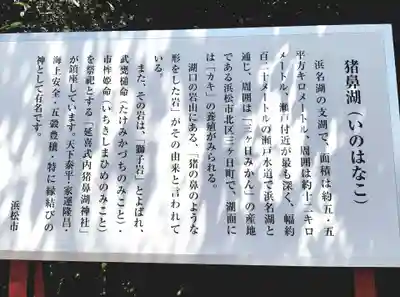 猪鼻湖（いのはなこ）
浜名湖の支湖で、面積は約五・五
平方キロメートル、周囲は約十二キロ
メートル、瀬戸付近が最も深く、幅約
百二十メートルの瀬戸水道で浜名湖と
通じ、周囲は「三ヶ日みかん」の産地
である浜松市北区三ヶ日町で、湖面に
は「カキ」の養殖がみられる。
湖口の岩山にある、「猪の鼻のような
形をした岩」がその由来と言われて
いる。
また、その岩は、「獅子岩」とよばれ、
武甕槌命（たけみかづちのみこと）・
市杵姫命（いちきしまひめのみこと）
を祭祀とする「延喜式内猪鼻湖神社」
が鎮座しています。天下泰平・家運隆昌・
海上安全・五穀豊穣・特に縁結びの
神として有名です。
浜松市